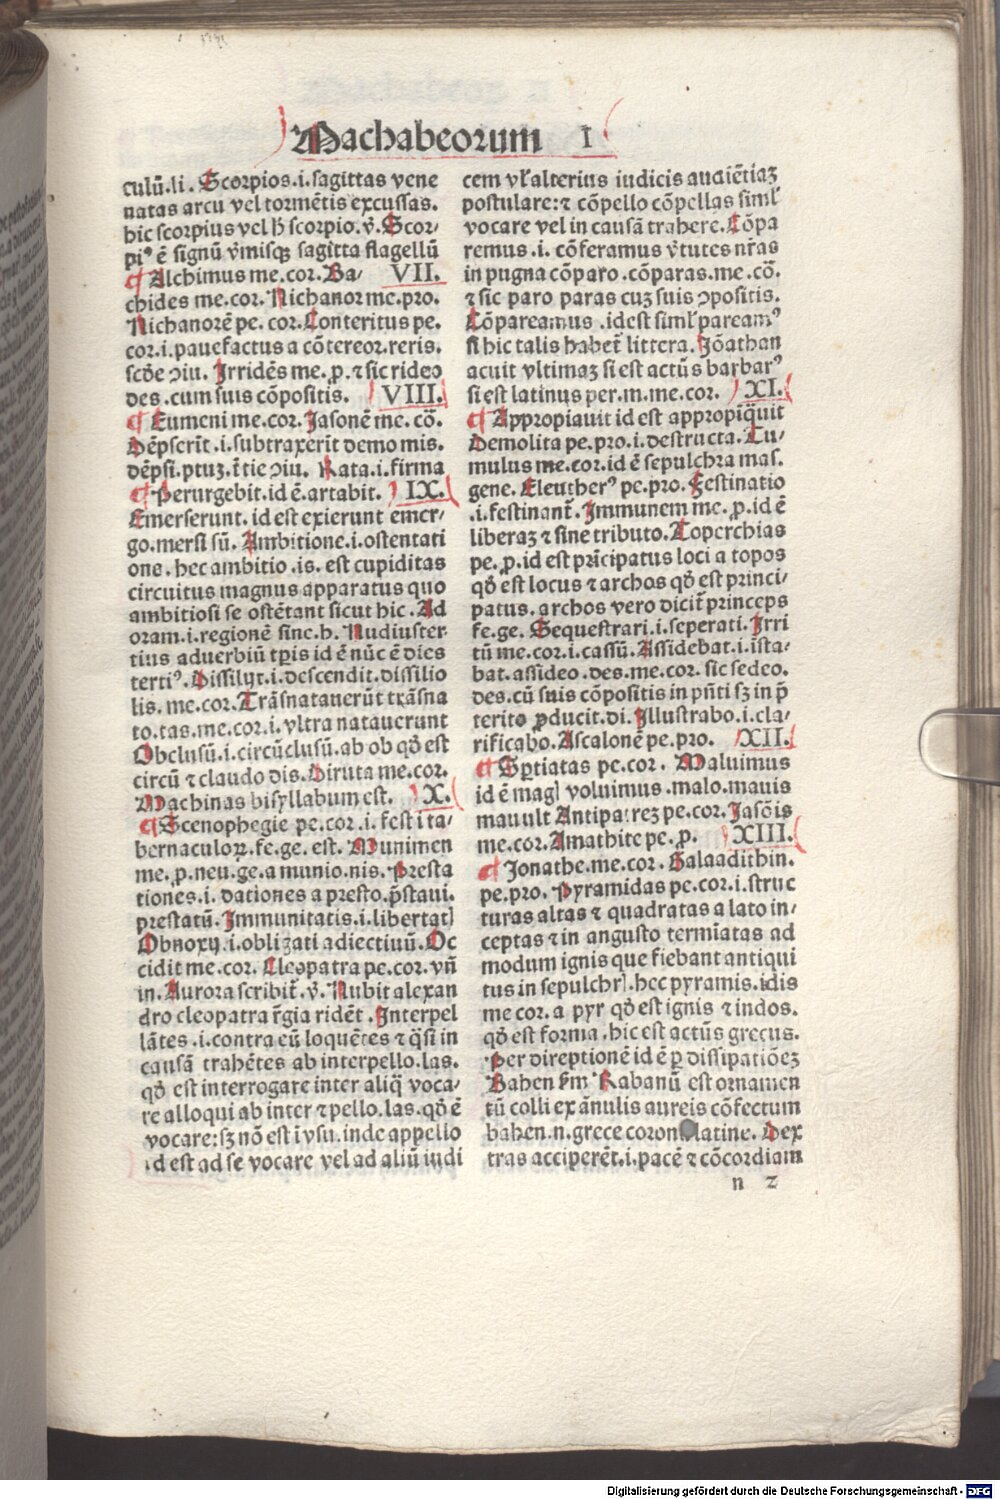 Machabeorum I
culū.li. Scorpios.i.sagittas vene
natas arcu vel tormētis excussas.
hic scorpius vel h̄ scorpio.v̄. Scor/
piꝰ ē signū v̄misqꝫ sagitta flagellū
¶ Alchimus me.cor. Ba/ VII.
chides me.cor. Nichanor me.pro.
Nichanorē pe. cor. Conteritus pe.
cor.i.pauefactus a cōtereor.reris.
scđe ↄiu. Irridēs me.ꝓ.⁊ sic rideo
des.cum suis cōpositis. VIII.
¶ Eumeni me.cor. Jasonē me. cō.
Dēpserīt.i.subtraxerīt demo mis.
dēpsi.ptuꝫ.t̄tie ↄiu. Rata.i.firma
¶ Perurgebit.id ē.artabit. IX.
Emerserunt. id est exierunt emer/
go.mersi sū. Ambitione.i.ostentati
one. hec ambitio .is. est cupiditas
circuitus magnus apparatus quo
ambitiosi se ostētant sicut hic. Ad
oram.i.regionē sine.h. Nudiuster
tius aduerbiū tꝑis id ē nūc ē dies
tertiꝰ. Dissilijt.i.descendit.dissilio
lis. me.cor. Trāsnatauerūt trāsna
to.tas.me.cor.i. vltra natauerunt
Obclusū.i.circūclusū.ab ob qđ est
circū ⁊ claudo dis. Diruta me.cor.
Machinas bisyllabum est. X.
¶ Scenophegie pe.cor.i. festi ta/
bernaculoꝝ.fe.ge. est. Munimen
me.ꝓ.neu.ge.a munio.nis. Presta
tiones.i. dationes a presto.p̄staui.
prestatū. Immunitatis.i.libertatꝭ
Obnoxij.i.obligati adiectiuū. Oc
cidit me.cor. Cleopatra pe.cor.vn̄
in. Aurora scribit̄.v̄. Nubit alexan
dro cleopatra r̄gia ridēt. Interpel
lātes .i.contra eū loquētes ⁊ q̄si in
causā trahētes ab interpello.las.
qđ est interrogare inter aliq̄ voca/
re alloqui ab inter ⁊ pello.las.qđ ē
vocare:sꝫ nō est ī vsu.inde appello
id est ad se vocare vel ad aliū iudi
cem vl̓ alterius iudicis audiētiaꝫ
postulare:⁊ cōpello cōpellas siml̓
vocare vel in causā trahere. Cōpa
remus .i. cōferamus v̄tutes nr̄as
in pugna cōparo.cōparas.me.cō.
⁊ sic paro paras cuꝫ suis ↄpositis.
Cōpareamus .idest siml̓ pareamꝰ
si hic talis habet̄ littera. Jōathan
acuit vltimaꝫ si est actūs barbarꝰ
si est latinus per.m.me.cor. XI.
¶ Appropiauit id est appropīq̄uit
Demolita pe.pro.i.destructa. Tu/
mulus me.cor.id ē sepulchra mas.
gene. Eleutherꝰ pe.pro. Festinatio
.i.festinant̄. Immunem me. ꝓ.id ē
liberaꝫ ⁊ sine tributo. Toperchias
pe.ꝓ.id est prīcipatus loci a topos
qđ est locus ⁊ archos qđ est princi/
patus. archos vero dicit̄ princeps
fe.ge. Sequestrari.i.seperati. Irri
tū me.cor.i.cassū. Assidebat.i.īsta/
bat.assideo.des.me.cor.sic sedeo.
des.cū suis cōpositis in pn̄ti sꝫ in p̄
terito ꝓducit.di. Illustrabo.i.cla/
rificabo. Ascalonē pe.pro. XII.
¶ Sꝑtiatas pe.cor. Maluimus
id ē magꝭ voluimus.malo.mauis
mauult Antipatreꝫ pe.cor. Jasōis
me.cor. Amathite pe.ꝓ. XIII.
¶ Jonathe.me.cor. Galaadithin.
pe.pro. Pyramidas pe.cor.i.struc
turas altas ⁊ quadratas a lato in/
ceptas ⁊ in angusto termīatas ad
modum ignis que fiebant antiqui
tus in sepulchrꝭ.hec pyramis.idis
me cor. a pyr qđ est ignis ⁊ indos.
qđ est forma.hic est actūs grecus.
Per direptionē id ē ꝑ dissipatiōeꝫ
Bahen s̄m Rabanū est ornamen
tū colli ex ānulis aureis cōfectum
bahen.n.grece corona latine. Dex
tras acciperēt.i.pacē ⁊ cōcordiam
n 2
Digitalisierung gefördert durch die Deutsche Forschungsgemeinschaft - DFG